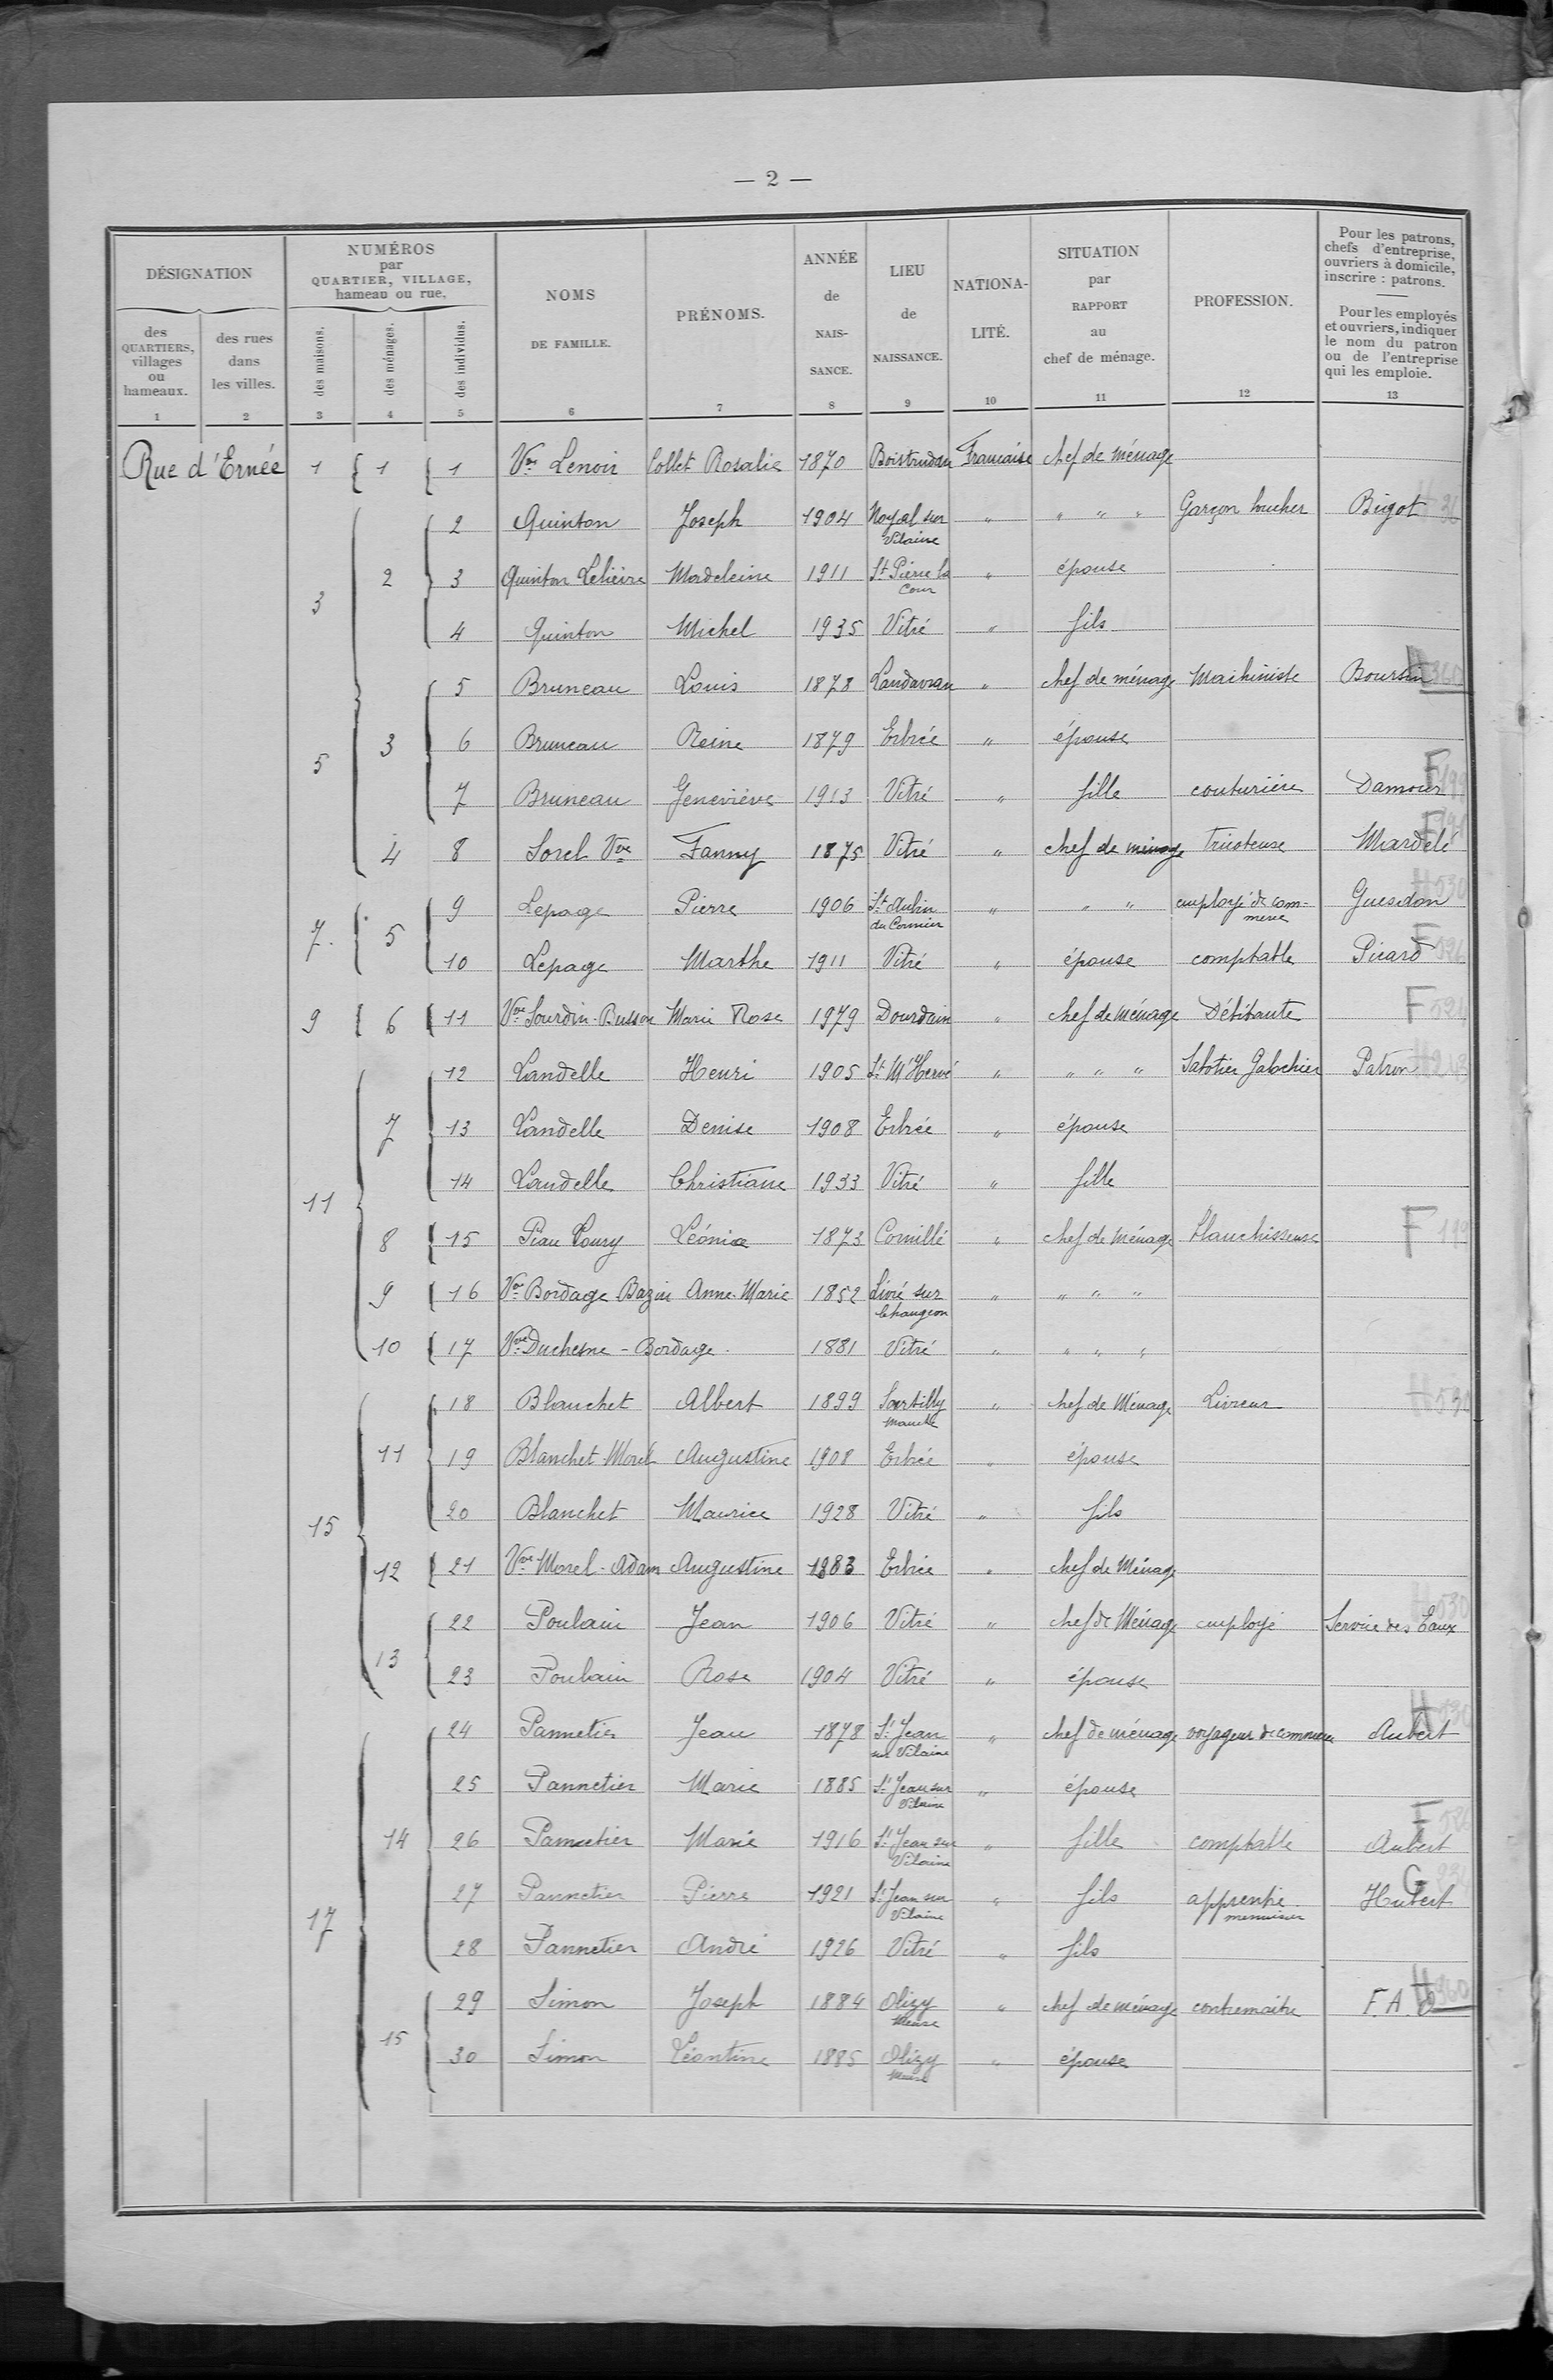 — 2 —
DÉSIGNATION
des QUARTIERS, villages ou hameaux.
des rues dans les villes.
NUMÉROS par QUARTIER, VILLAGE, hameau ou rue.
des maisons.
des ménages.
des individus.
NOMS DE FAMILLE.
PRÉNOMS.
ANNÉE de NAIS-SANCE.
LIEU de NAISSANCE.
NATIONA-LITÉ.
SITUATION par RAPPORT au chef de ménage.
PROFESSION.
Pour les patrons, chefs d'entreprise, ouvriers à domicile, inscrire : patrons.
Pour les employés et ouvriers, indiquer le nom du patron ou de l'entreprise qui les emploie.
1 2 3 4 5 6 7 8 9 10 11 12 13
Rue d'Ernée 1 1 1 Vve Lenoir Collet Rosalie 1870 Boistrudan Francaise chef de ménage
2 Quinton Joseph 1904 Noyal sur Vilaine " " " " Garçon boucher Bigot
3 2 3 Quinton Lelièvre Madeleine 1911 St Pierre la Cour " épouse
4 Quinton Michel 1935 Vitré " fils
5 Bruneau Louis 1878 Landavran " chef de ménage Machiniste Boursin
5 3 6 Bruneau Reine 1879 Erbrée " épouse
7 Bruneau Geneviève 1913 Vitré " fille couturière Damour
4 8 Sorel Vve Fanny 1875 Vitré " chef de ménage tricoteuse Mardelé
7. 5 9 Lepage Pierre 1906 St Aubin du Cormier " " " employé de commerce Guesdon H 530
10 Lepage Marthe 1911 Vitré " épouse comptable Picard F 526
9 6 11 Vve Sourdin-Busson Marie Rose 1979 Dourdain " chef de Ménage Débitante F 526
12 Landelle Henri 1905 St M'Hervé " " " " Sabotier Galochier Patron
11 7 13 Landelle Denise 1908 Erbrée " épouse
14 Landelle Christiane 1933 Vitré " fille
8 15 Piau Loury Léonice 1873 Cornillé " chef de Ménage blanchisseuse F
9 16 Vve Bordage Bazin Anne-Marie 1852 Livré sur Changeon " " " "
10 17 Vve Duchesne - Bordage 1881 Vitré " " " "
18 Blanchet Albert 1899 Sartilly Manche " chef de Ménage Livreur H 530
11 19 Blanchet Morel Augustine 1908 Erbrée " épouse
15 20 Blanchet Maurice 1928 Vitré " fils
12 21 Vve Morel-Adam Augustine 1883 Erbrée " chef de Ménage
13 22 Poulain Jean 1906 Vitré " chef de Ménage employé Service des Eaux H 530
23 Poulain Rose 1904 Vitré " épouse
24 Pannetier Jean 1878 St Jean sur Vilaine " chef de ménage voyageur de commerce Aubert H 530
25 Pannetier Marie 1885 St Jean sur Vilaine " épouse
14 26 Pannetier Marie 1916 St Jean sur Vilaine " fille comptable Aubert F 526
17 27 Pannetier Pierre 1921 St Jean sur Vilaine " fils apprentie menuisier Hubert G
28 Pannetier André 1926 Vitré " fils
15 29 Simon Joseph 1884 Olizy Meuse " chef de ménage contremaitre F.A.O H 360
30 Simon Léontine 1885 Olizy Meuse " épouse